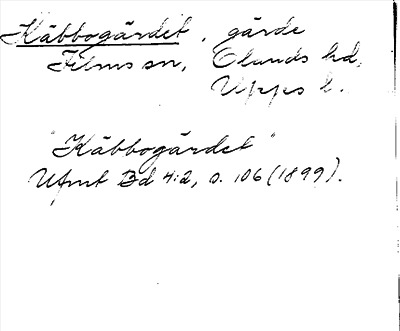 Käbbogärdet, gärde
Films sn, Olands hd,
Upps l.
"Käbbogärdet"
UfmT Bd 4:2, s. 106 (1899).